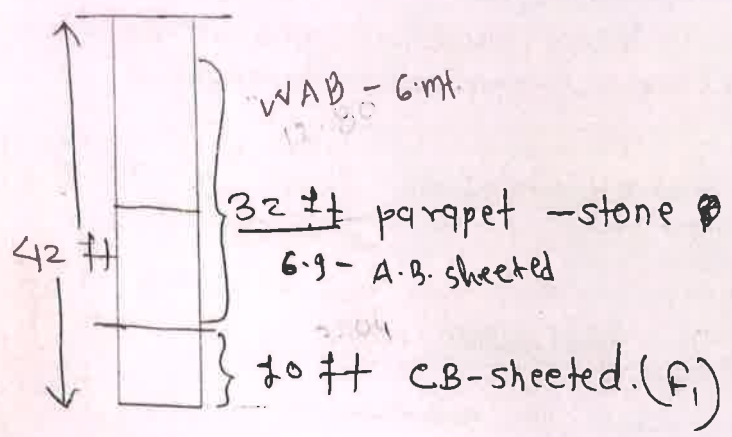 WAB - 6.mt.
32 ft parapet - stone
42 ft
6.9 - A.B. sheeted
10 ft CB-sheeted. (F₁)